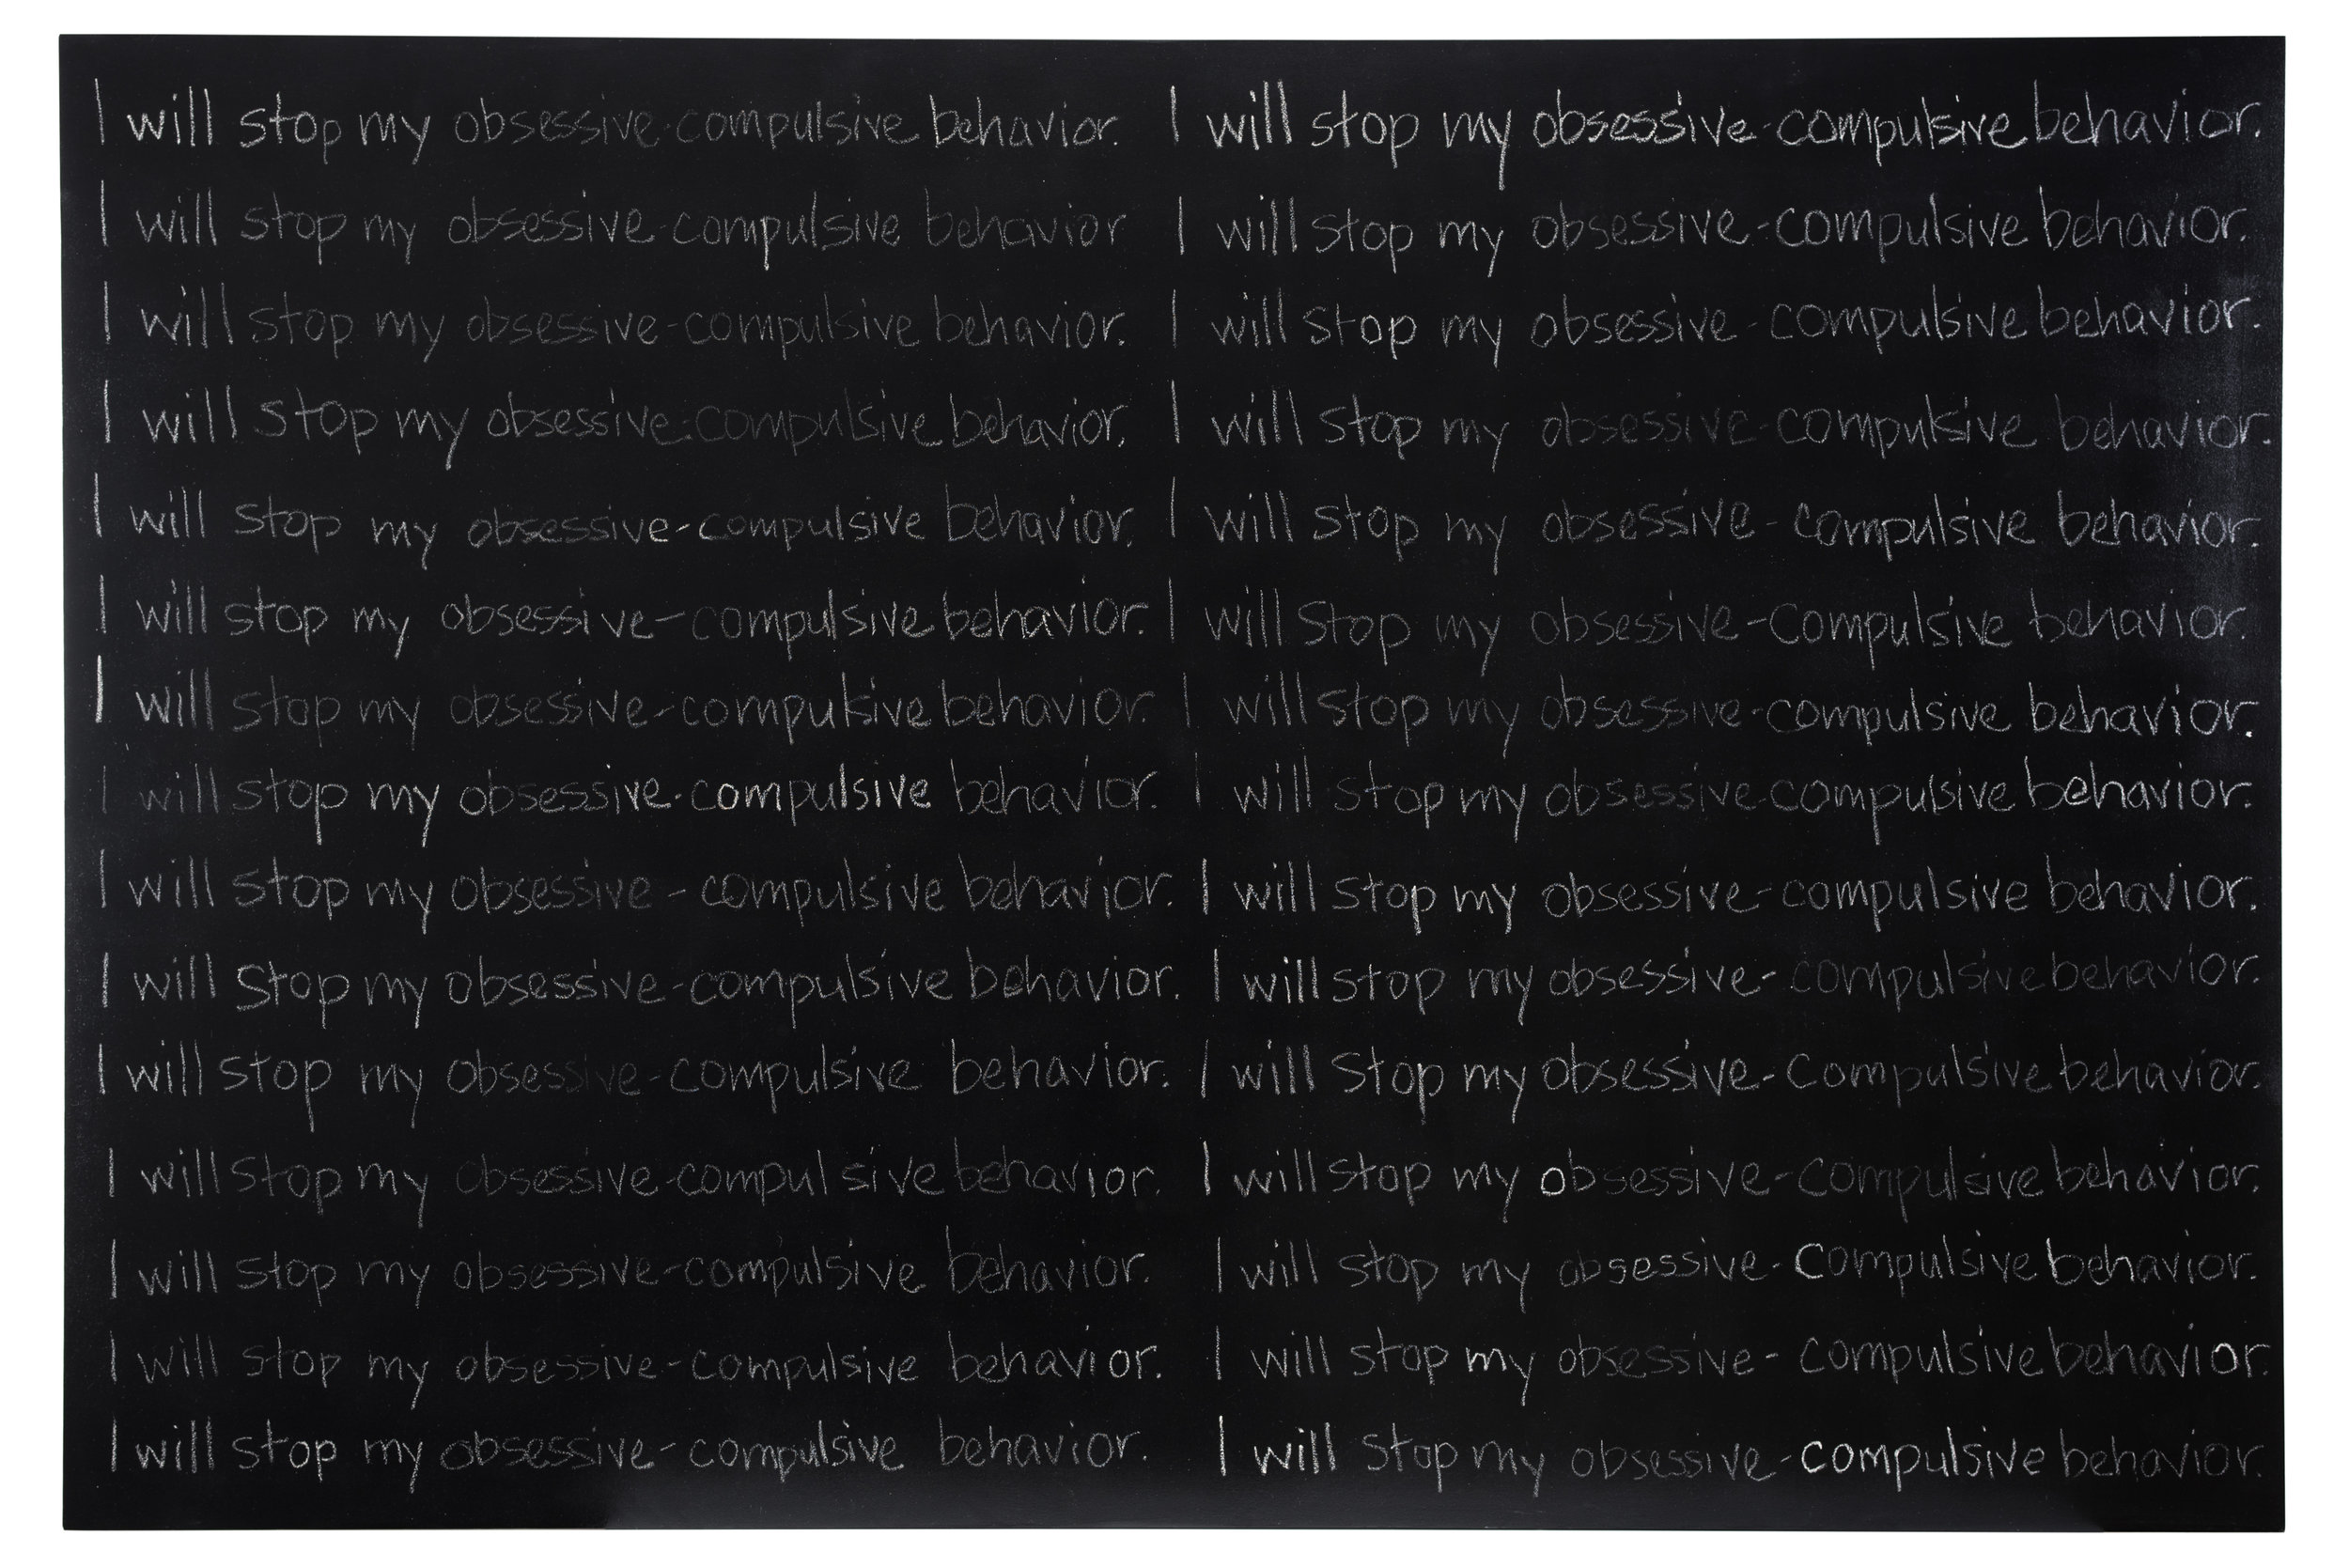 I will stop my obsessive-compulsive behavior.
I will stop my obsessive-compulsive behavior
I will stop my obsessive-compulsive behavior.
I will stop my obsessive-compulsive behavior.
I will stop my obsessive-compulsive behavior.
I will stop my obsessive-compulsive behavior.
I will stop my obsessive-compulsive behavior.
I will stop my obsessive-compulsive behavior.
I will stop my obsessive-compulsive behavior.
I will stop my obsessive-compulsive behavior.
I will stop my obsessive-compulsive behavior.
I will stop my obsessive-compulsive behavior.
I will stop my obsessive-compulsive behavior.
I will stop my obsessive-compulsive behavior.
I will stop my obsessive-compulsive behavior.
I will stop my obsessive-compulsive behavior.
I will stop my obsessive-compulsive behavior.
I will stop my obsessive-compulsive behavior.
I will stop my obsessive-compulsive behavior.
I will stop my obsessive-compulsive behavior.
I will stop my obsessive-compulsive behavior.
I will stop my obsessive-compulsive behavior.
I will stop my obsessive-compulsive behavior.
I will stop my obsessive-compulsive behavior.
I will stop my obsessive-compulsive behavior.
I will stop my obsessive-compulsive behavior.
I will stop my obsessive-compulsive behavior.
I will stop my obsessive-compulsive behavior.
I will stop my obsessive-compulsive behavior.
I will stop my obsessive-compulsive behavior.